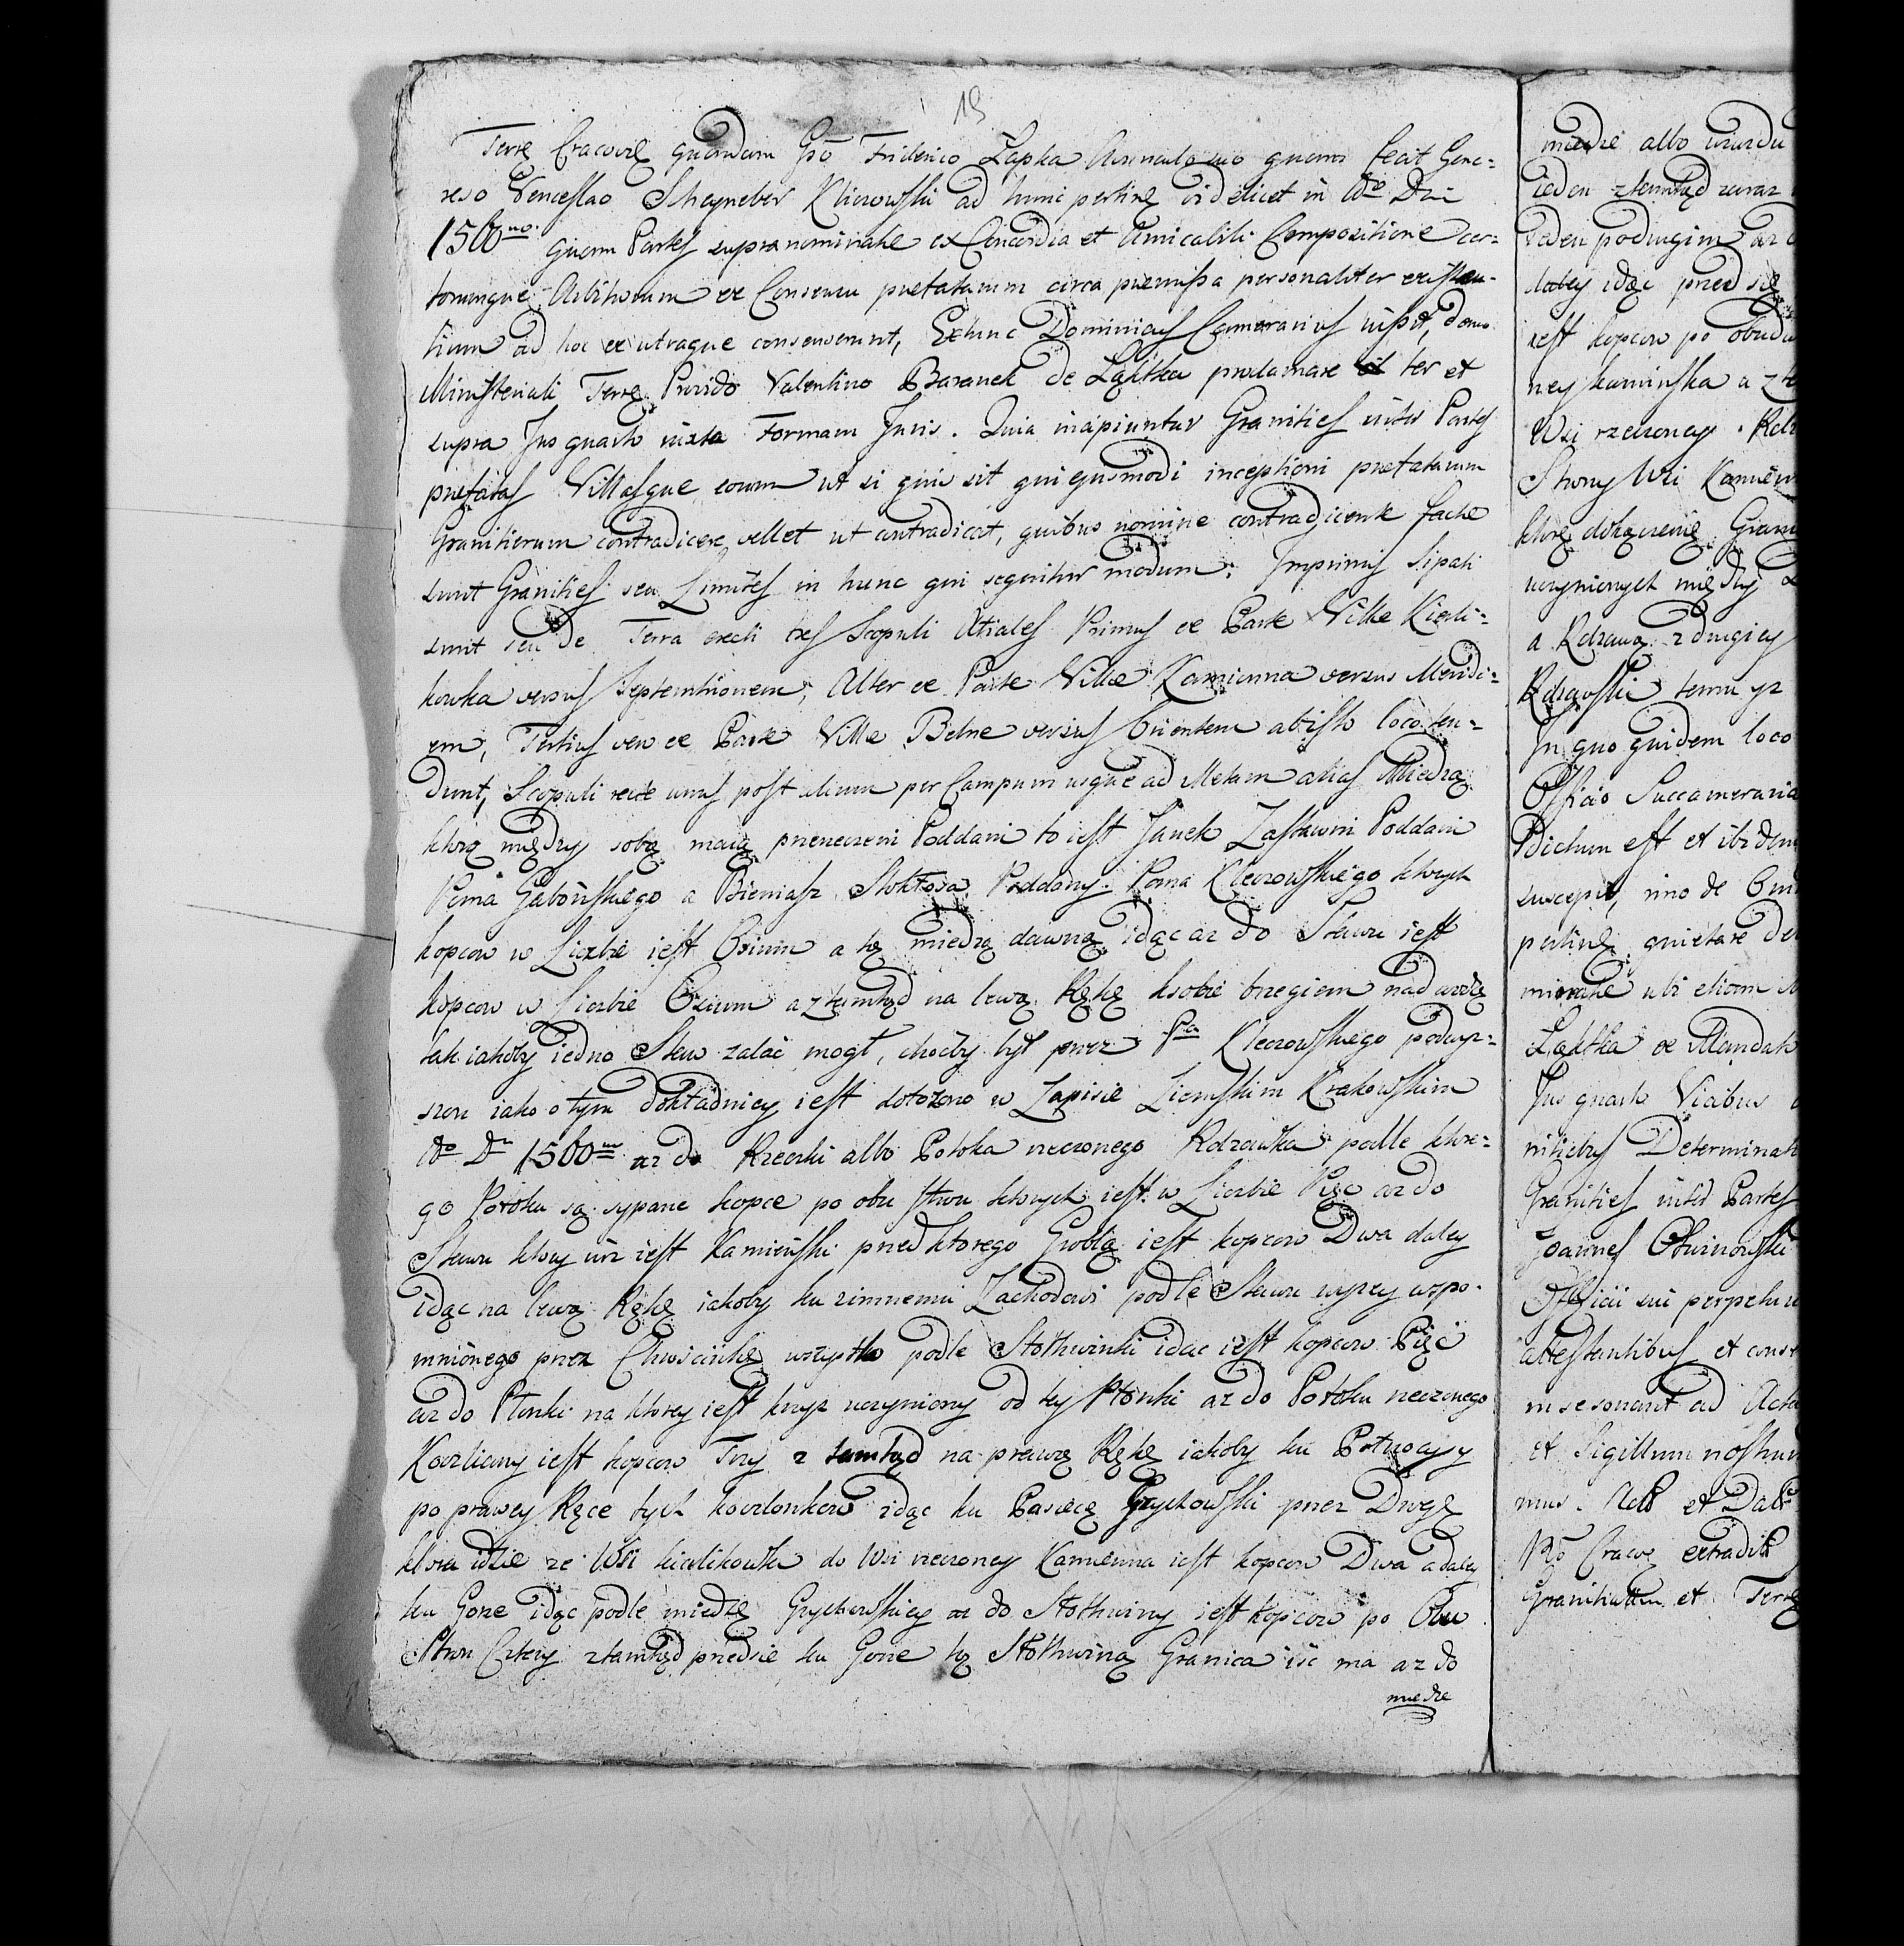 19
Terrę Cracovię quondam Gso Friderico Łapka Annulo suo quam fecit Gene=
roso Venceslao Scheyneber Kliczowski ad hunc pertinę videlicet in Ao Dni
1500no. quam Partes supra nominate ex Concordia et Amicabili Compositione cer=
torumque Arbitrorum ex Consensu prefatarum circa premissa personaliter existen=
tium ad hoc ex utraque consenserunt, Extunc Dominicus Camerarius iussit, dono
Ministeriali Terrę Provido Valentino Baranek de Ląktka proclamare ter et
supra Jus quarto iuxta Formam Juris. Quia incipiuntur Granities inter Partes
prefatas Villasque eorum ut si quis sit qui ejusmodi inceptioni prefatarum
Granitierum contradicere vellet ut contradicat, quibus nomine contradicente facte
sunt Granities seu Limites in hunc qui sequitur modum. Imprimis sipati
sunt seu de Terra erecti tres Scopuli Acialess Primus ex Parte Ville Kierli=
kowka versus Septemtrionem, Alter ex Parte Villæ Kamienna versus Meridi=
em, Tertius vero ex Parte Villæ Belne versus Orientem ab isto loco ten=
dunt, Scopuli recte unus post alium per Campum usque ad Metam alias Miedzą
ktorą między sobą maią przerzeczeni Poddani to iest Janek Zastawni Poddani
Pana Gabońskiego a Bieniasz Stoktosa Poddany Pana Kleczowskiego ktorych
kopcow w Liczbie iest Osium a tę miedzą dawną idąc az do Stawu iest
kopcow w Liczbie Osium a ztamtąd na lewą Rękę ksobie brzegiem nad wodę
tak iakoby iedno Staw zalać mogł, choćby był przez Pa Kleczowskiego podwyz=
szon iako o tym dokładniey iest dołożono w Zapisie Ziemskim Krakowskim
Ao Dn 1500no az do Rzeczki albo Potoka rzeczonego Rdzawka podle ktore=
go Potoku są sypane kopce po obu stron ktorych iest w Liczbie Pięc az do
Stawu ktory iuz iest Kamieński przed ktorego Groblą iest kopcow Dwa daley
idąc na lewą Rękę iakoby ku zimnemu Zachodowi podle Stawu wyzey wspo=
mnionego przez Chwościnkę wszystko podle Stothwinki idąc iest kopcow Pięć
az do Plonki na ktorey iest krzyz uczyniony od tey Plonki az do Potoku rzeczonego
Kozliany iest kopcow Trzy z tamtąd na prawą Rękę iakoby ku Połnocy y
po prawey Ręce tych kozlonkow idąc ku Pasiecę Grychowski przez Drogę
ktora idzie ze Wsi kierlikowka do Wsi rzeczoney Kamienna iest kopcow Dwa a daley
ku Gorze idąc podle miedzę Grychowskiey az do Stothwiny iest kopcow po Obu
Stron Cztery ztamtąd przedsie ku Gorze tą Stothwiną Granica isc ma az do
miedze
miedze albo
ieden ztamtąd zaraz
ieden podrugim az
daley idąc przed się
iest kopcow po obudw
ney kamińska a z
Wsi rzeczoney. Rdz
Strony Wsi Kamien
ktorę dokączenię Gran
uczynionych między
a Rdzawą z drugiey
Rdzawski temu yz
In quo quidem loco
Officio Succamerario
Pdictum est et ibidem
suscepit, imo de
pertinę quietare
minate ubi etiam
Ląktka ex Mandato
Jus quarto Vicibus
nitiebus Determinat
Granities inter Partes
Joannes Chwinowski
Officii sui perpetuu
attestantibus et
insesonant ad Acta
et Sigillum nostrum
mus. Act et Dat
Pro Cracov extradit
Granitiatum et Terrę